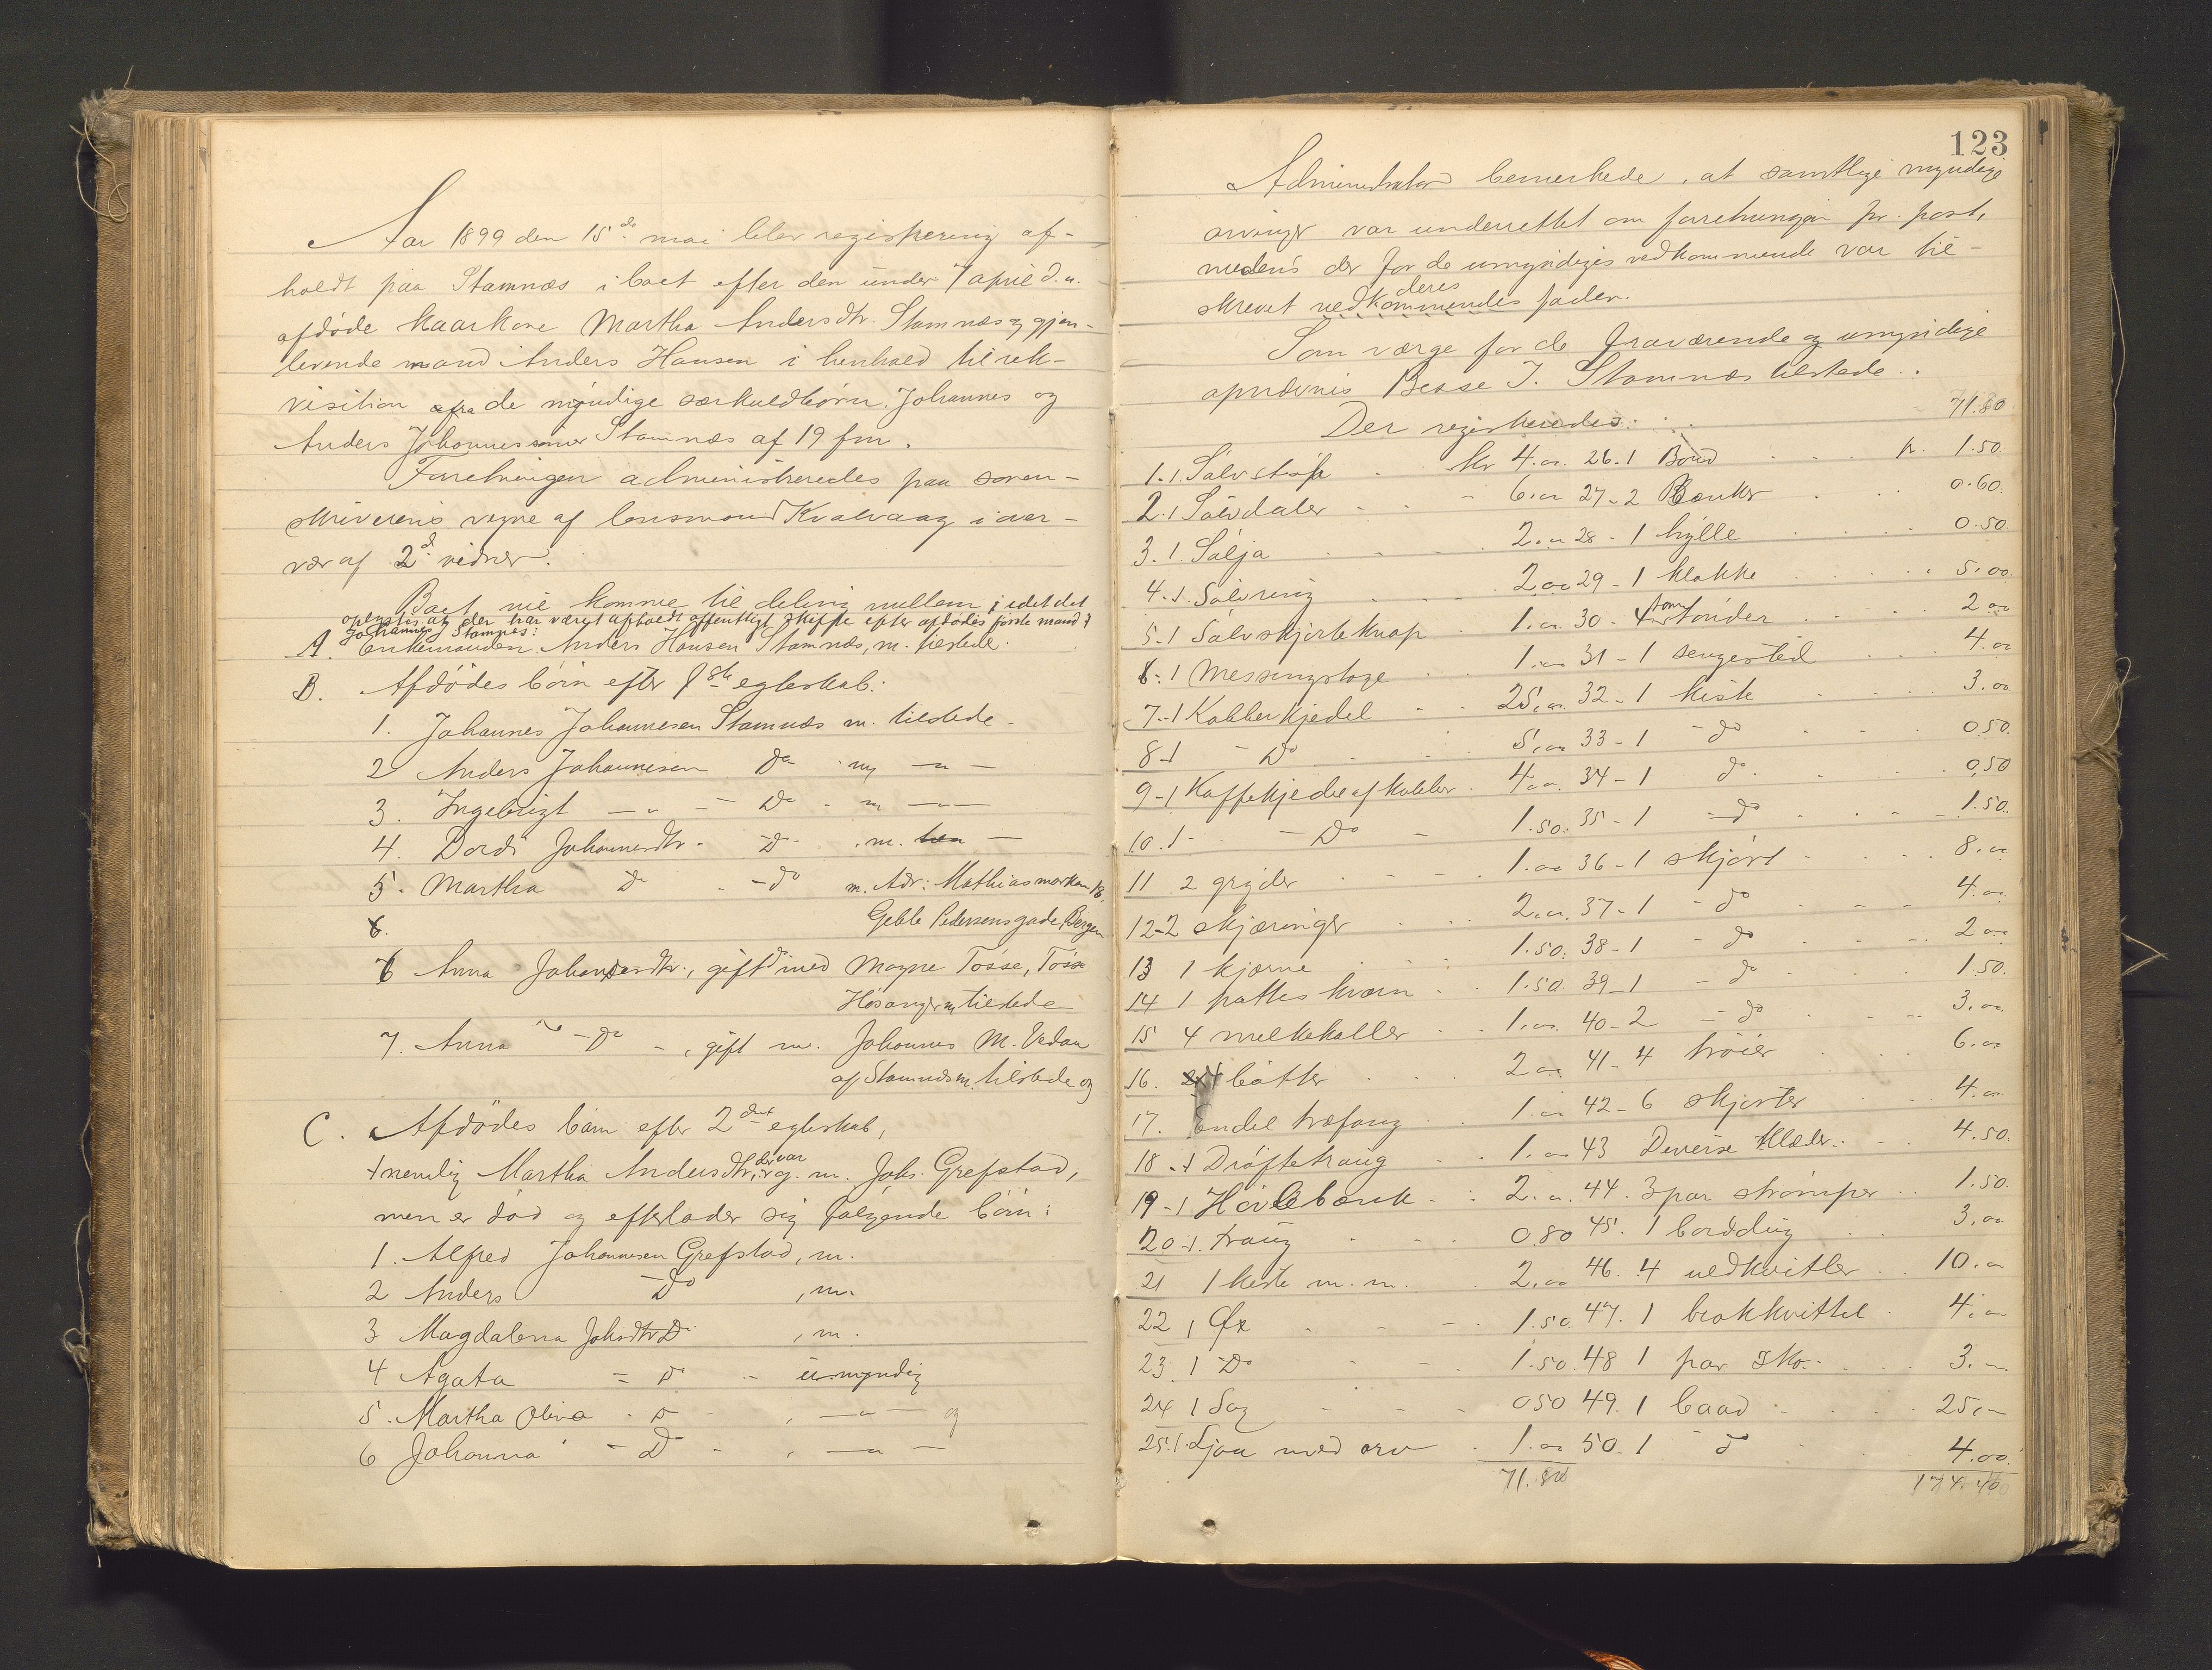 Aar 1899 den 15de mai blev registrering af-
holdt paa Stamnæs i boet efter den under 7 april d. a.
afdøde kaarkone Martha Andersdtr. Stamnæs og gjen-
levende mand Anders Hansen i henhold til rek-
visition fra de myndige særkuldbørn Johannes og
Anders Johannessønner Stamnæs af 19 f.m.
Forretningen administreredes paa soren-
skriverens vegne af lensmand Kvalvaag i over-
vær af 2de vidner.
Boet vil komme til deling mellem, idet det
oplystes at der har været afholdt offentligt skifte efter afdødes første mand
Johannes Stamnes:
A. Enkemanden Anders Hansen Stamnæs, m. tilstede.
B. Afdødes børn efter 1ste egteskab:
1. Johannes Johannesen Stamnæs m. tilstede.
2 Anders Johannesen Do my — " —
3. Ingebrigt — " — Do - m — " —
4. Dordi Johannesdtr. - Do - m. —
5. Martha Do - Do m. Adr: Mathiasmarken 18,
Geble Pedersensgade, Bergen
6 Anna Johannesdtr., gift med Mogne Tosse, Tosse
Hosanger, m tilstede
7. Anna — Do —, gift m. Johannes M. Vedaa
af Stamnæs m. tilstede og
C. Afdødes børn efter 2det egteskab,
nemlig Martha Andersdtr., der var g. m. Johs. Grefstad,
men er død og efterlader sig følgende børn:
1. Alfred Johannesen Grefstad, m.
2 Anders Do , m.
3 Magdalena Johsdtr Do , m.
4 Agata — Do — umyndig
5. Martha Oliva - Do - , — " — og
6 Johanna - Do - , — " —
123
Administrator bemerkede, at samtlige myndige
arvinger var underrettet om forretningen pr. post,
medens der for de umyndiges vedkommende var til-
skrevet deres fader.
Som værge for de fraværende og umyndige
opnævnes Besse J. Stamnæs tilstede.
Der registreredes:
71.80
1. 1. Sølvstøb kr 4.00 26. 1 Bord kr. 1.50
2. 1 Sølvdaler - 6.00 27 - 2 Bænker 0.60
3. 1. Sølja 2.00 28 - 1 hylle 0.50
4. 1. Sølvring 2.00 29 - 1 klokke 5.00
5. 1 Sølvskjorteknap 1.00 30 - 4 tom tønder 2.00
6. 1 Messingstage 1.00 31 - 1 sengested 4.00
7. 1 Kobberkjedel 25.00 32 - 1 kiste 3.00
8 1 - Do 5.00 33 - 1 - do 0.50
9 - 1 Kaffekjedel af kobber 4.00 34 - 1 do. 0.50
10. 1 - Do - 1.50 35 - 1 - do 1.50
11 2 gryder 1.00 36 - 1 skjørt 8.00
12 - 2 skjæringer 2.00 37 - 1 - do 4.00
13 1 kjærne 1.50 38 - 1 - do 2.00
14 1 kværn 1.50 39 - 1 - do 1.50
15 4 melkekoller 1.00 40 - 2 - do 3.00
16. 4 bøtter 2.00 41 - 4 trøier 6.00
17. Endel træfang 1.00 42 - 6 skjorter 4.00
18 - 1 Drøftetraug 1.00 43 Diverse klæder 4.50
19 - 1 Høvlebænk 2.00 44. 3 par strømper 1.50
20 - 1. traug 0.80 45. 1 borddug 3.00
21 1 kiste m. m. 2.00 46. 4 uldkvitler 10.00
22 1 Øx 1.50 47. 1 brokkvittel 4.00
23. 1 Do 1.50 48 1 par sko 3. —
24 1 Sag 0.50 49. 1 baad 25. —
25. 1. Ljaa med orv 1.00 50. 1 do 4.00
71.80 174.40